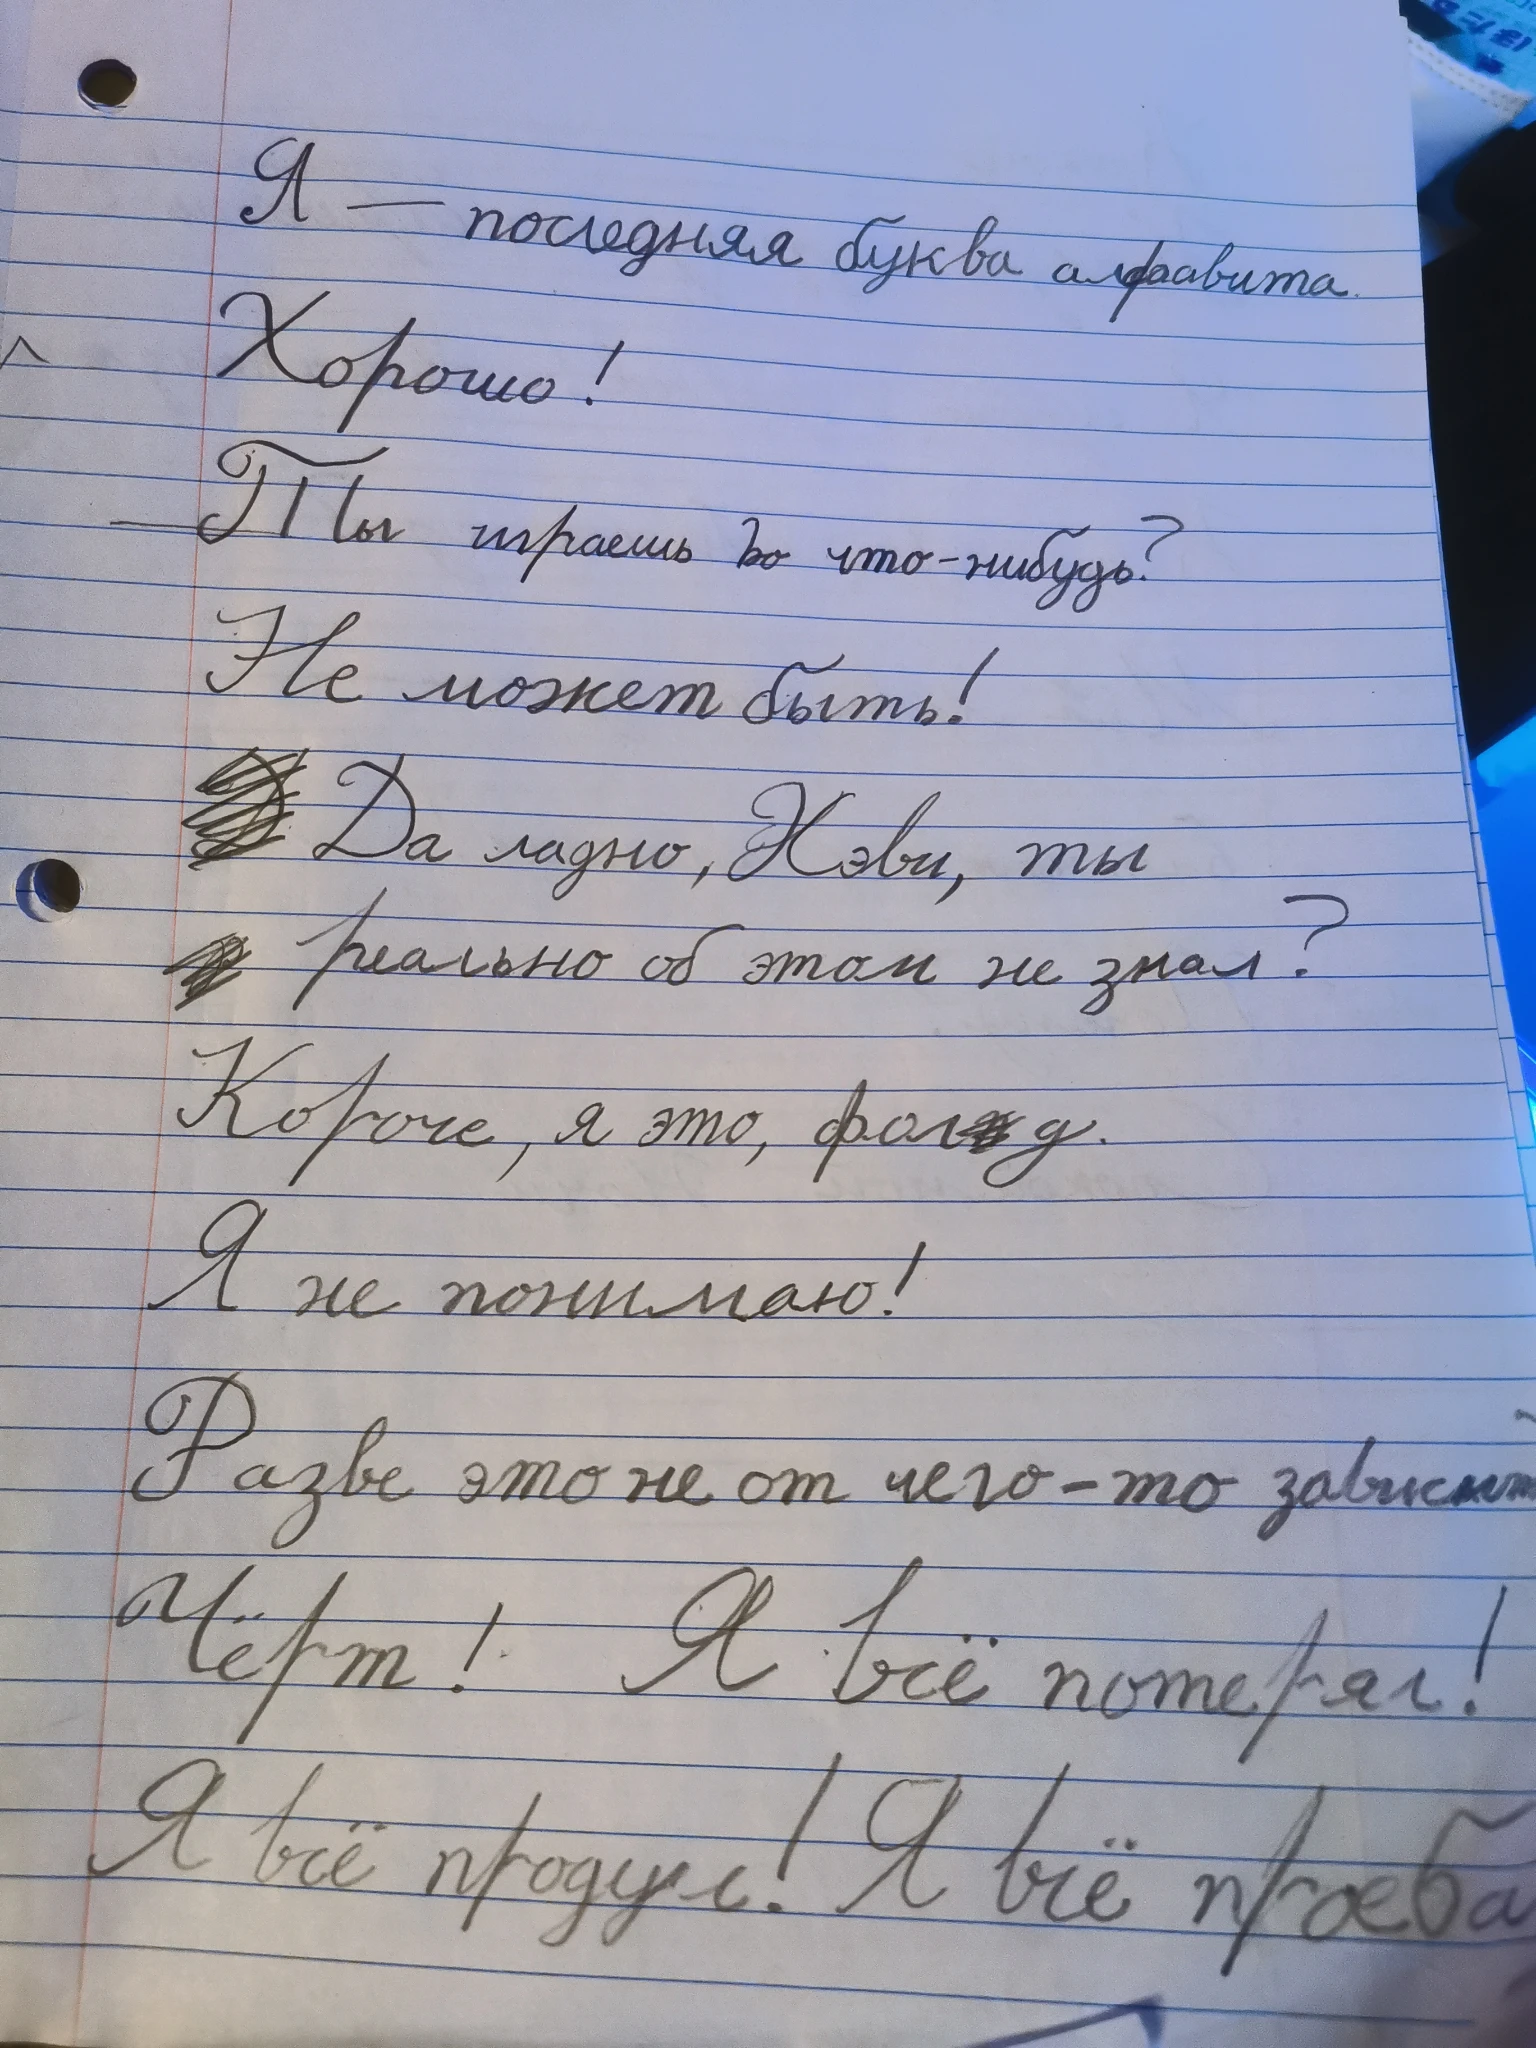 Я — последняя буква алфавита.
Хорошо!
—Ты играешь во что-нибудь?
Не может быть!
Да ладно, Хэви, ты
реально об этом не знал?
Короче, я это, фолд.
Я не понимаю!
Разве это не от чего-то зависит
Чёрт! Я всё потерял!
Я всё продул! Я всё проеба